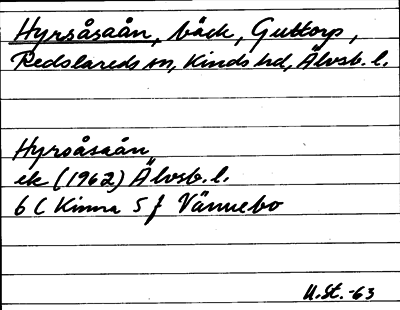 Hyrsåsaån, bäck, Guttorp,
Redslareds sn, Kinds hd, Älvsb. l.
Hyrsåsaån
ek (1962) Älvsb. l.
6 C Kinna 5 f Vännebo
U.St.-63